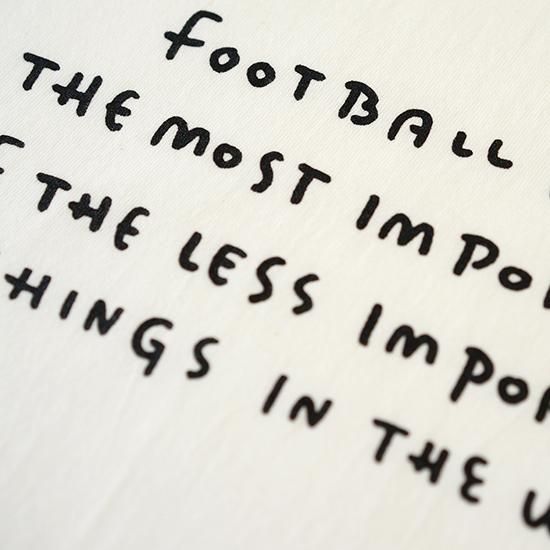 FOOTBALL
THE MOST IMPO
THE LESS IMPO
HINGS IN THE